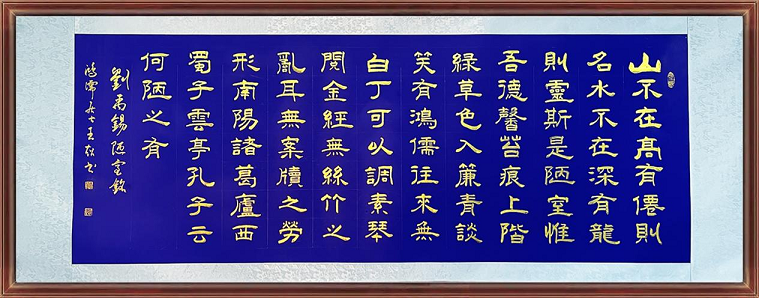 山不在髙有僊則
名水不在深有龍
則靈斯是陋室惟
吾德馨苔痕上階
綠草色入簾青談
笑有鴻儒往來無
白丁可以調素琴
閱金經無絲竹之
亂耳無案牘之勞
形南陽諸葛廬西
蜀子雲亭孔子云
何陋之有
劉禹錫陋室銘
鴻儒居士王书